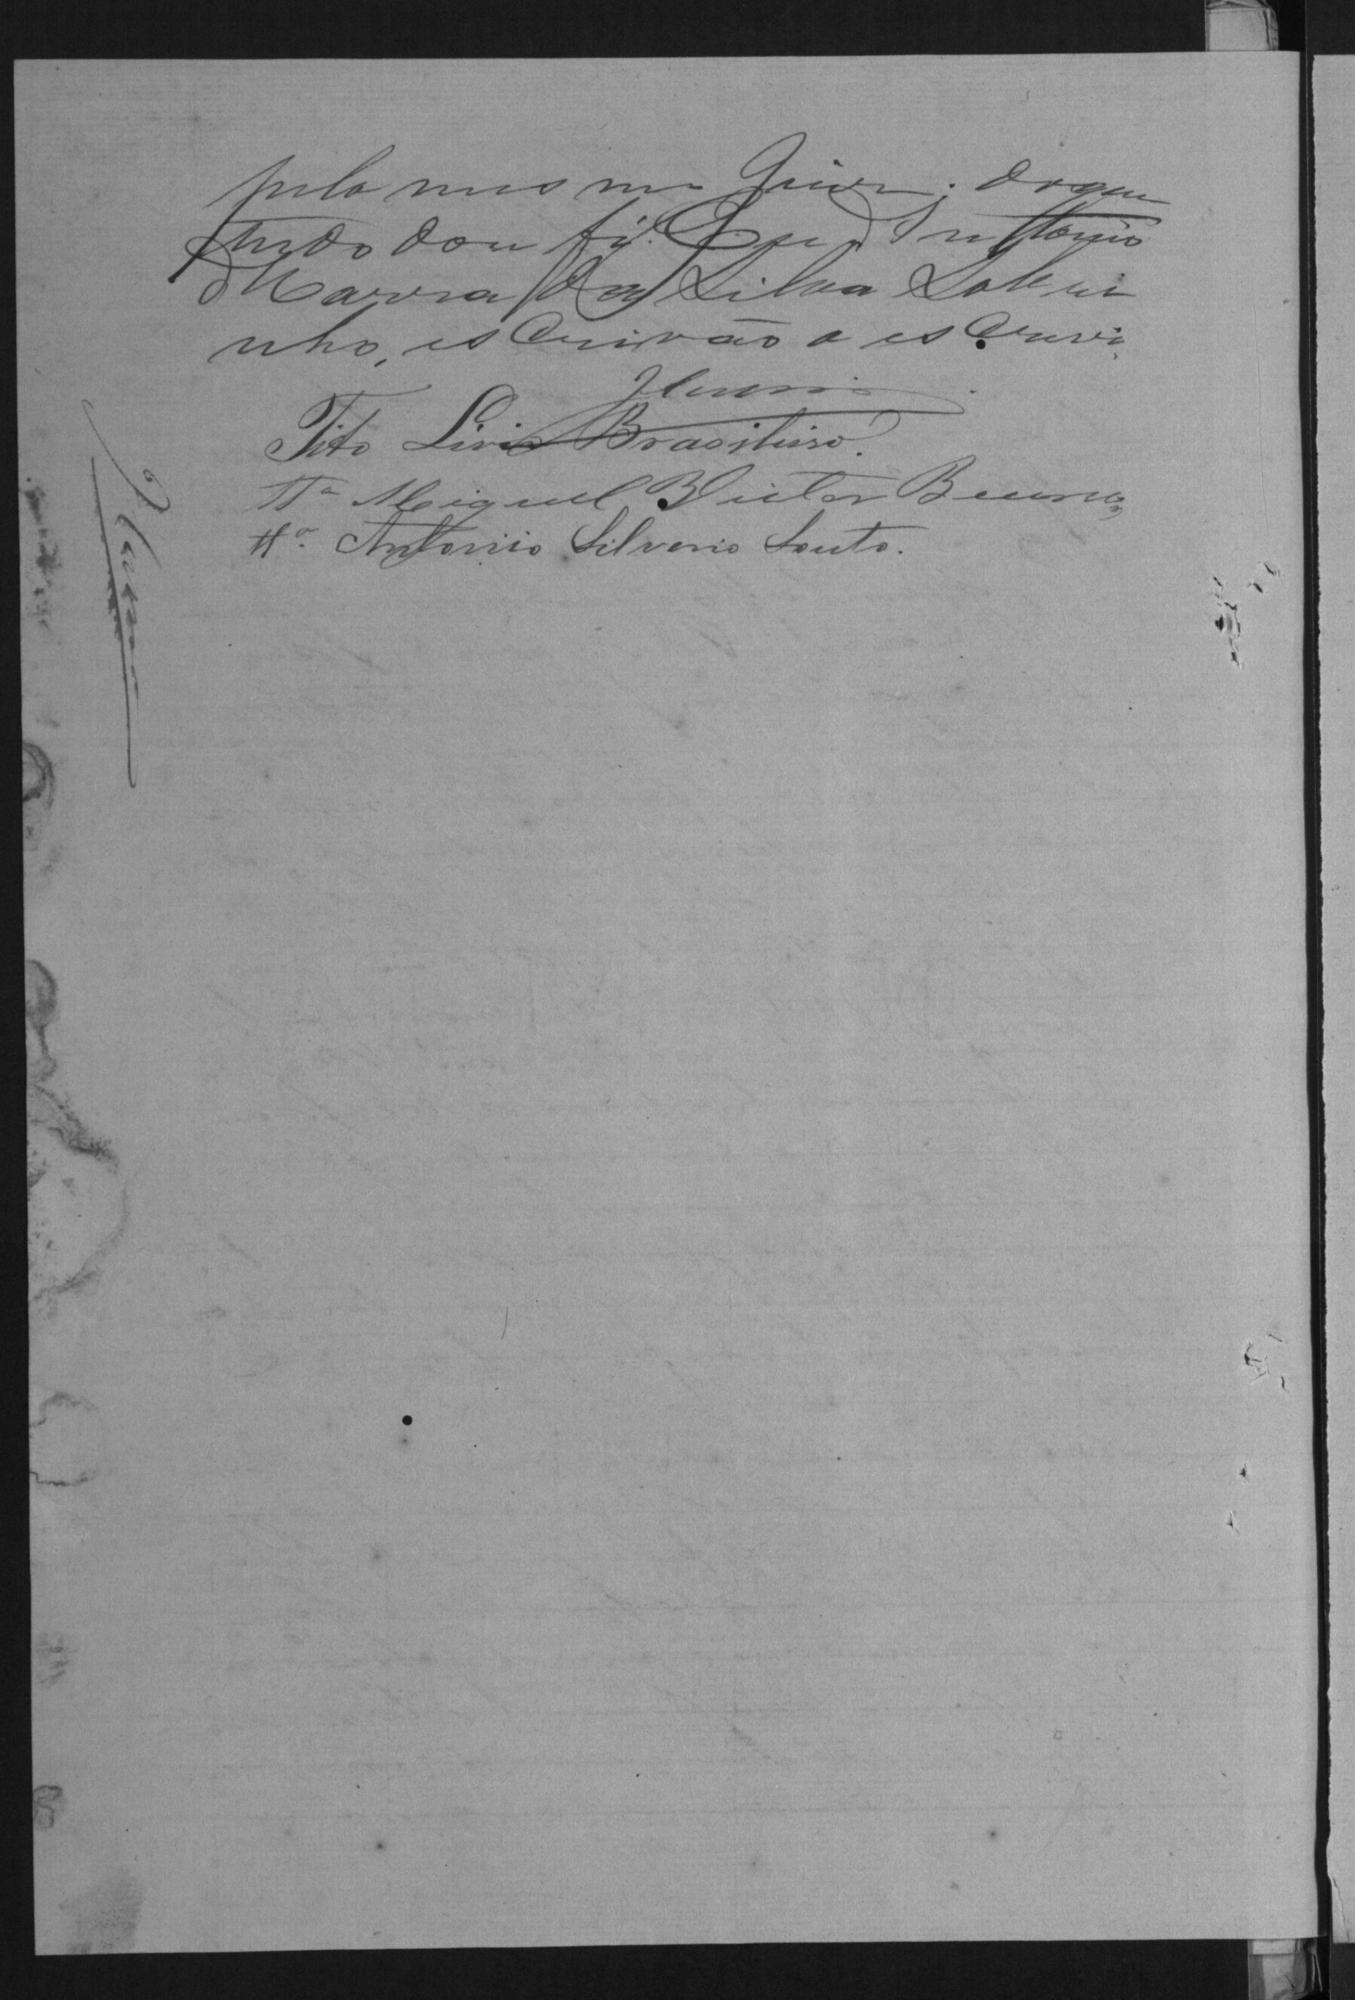 pelo mesmo Juiz; do que
tudo dou fé. Eu, Antonio
Marra da Silva Sobri
nho, escrivão o escrevi.
Tito Livio Brasileiro.
Ttª Miguel Victor Bueno
Ttª Antonio Silverio Souto.